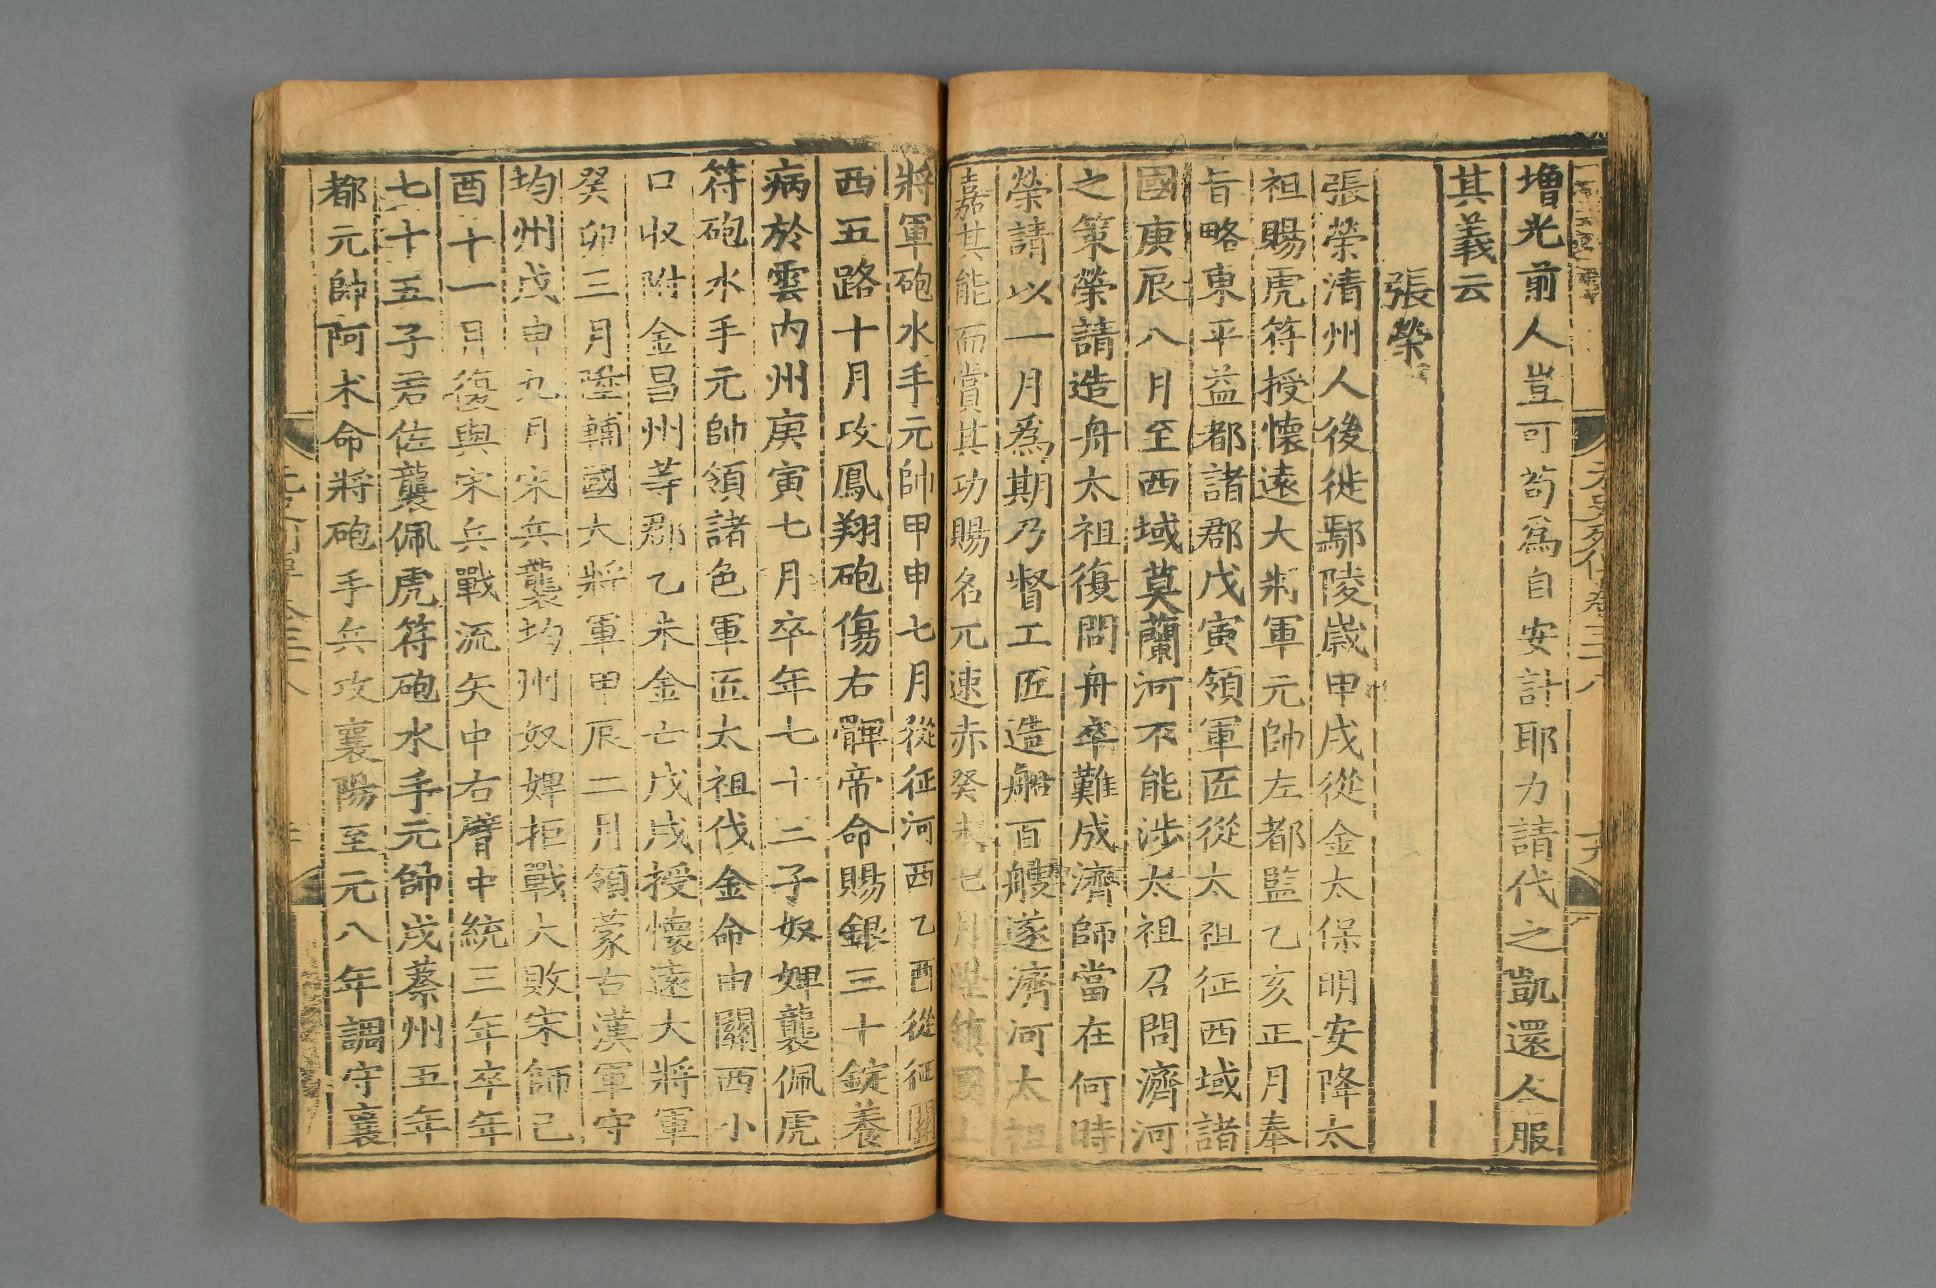 增光前人豈可苟爲自安計耶力請代之凱還人服
其義云
張榮
張榮清州人後徙鄢陵歲甲戌從金太保明安降太
祖賜虎符授懷遠大將軍元帥左都監乙亥正月奉
旨略東平益都諸郡戊寅領軍匠從太祖征西域諸
國庚辰八月至西域莫蘭河不能涉太祖召問濟河
之策榮請造舟太祖復問舟卒難成濟師當在何時
榮請以一月爲期乃督工匠造船百艘遂濟河太祖
嘉其能而賞其功賜名兀速赤癸未七月陞鎮國上
將軍砲水手元帥甲申七月從征河西乙酉從征關
西五路十月攻鳳翔砲傷右髀帝命賜銀三十錠養
病於雲內州庚寅七月卒年七十三子奴婢襲佩虎
符砲水手元帥領諸色軍匠太祖伐金命由關西小
口收附金昌州等郡乙未金亡戊戌授懷遠大將軍
癸卯三月陞輔國大將軍甲辰二月領蒙古漢軍守
均州戊申九月宋兵襲均州奴婢拒戰大敗宋師己
酉十一月復與宋兵戰流矢中右臂中統三年卒年
七十五子君佐襲佩虎符砲水手元帥戍蔡州五年
都元帥阿朮命將砲手兵攻襄陽至元八年調守襄